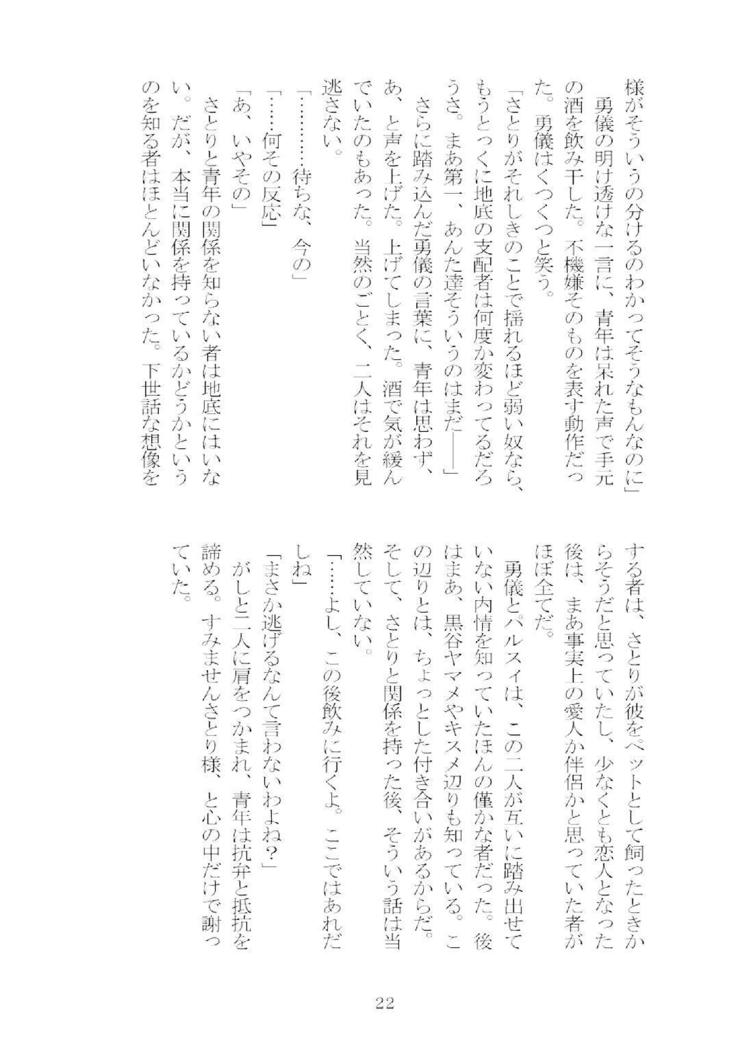 様がそういうの分けるのわかってそうなもんなのに」
　勇儀の明け透けな一言に、青年は呆れた声で手元
の酒を飲み干した。不機嫌そのものを表す動作だっ
た。勇儀はくつくつと笑う。
「さとりがそれしきのことで揺れるほど弱い奴なら、
もうとっくに地底の支配者は何度か変わってるだろ
うさ。まあ第一、あんた達そういうのはまだ――」
　さらに踏み込んだ勇儀の言葉に、青年は思わず、
あ、と声を上げた。上げてしまった。酒で気が緩ん
でいたのもあった。当然のごとく、二人はそれを見
逃さない。
「…………待ちな、今の」
「……何その反応」
「あ、いやその」
　さとりと青年の関係を知らない者は地底にはいな
い。だが、本当に関係を持っているかどうかという
のを知る者はほとんどいなかった。下世話な想像を
する者は、さとりが彼をペットとして飼ったときか
らそうだと思っていたし、少なくとも恋人となった
後は、まあ事実上の愛人か伴侶かと思っていた者が
ほぼ全てだ。
　勇儀とパルスィは、この二人が互いに踏み出せて
いない内情を知っていたほんの僅かな者だった。後
はまあ、黒谷ヤマメやキスメ辺りも知っている。こ
の辺りとは、ちょっとした付き合いがあるからだ。
そして、さとりと関係を持った後、そういう話は当
然していない。
「……よし、この後飲みに行くよ。ここではあれだ
しね」
「まさか逃げるなんて言わないわよね？」
　がしと二人に肩をつかまれ、青年は抗弁と抵抗を
諦める。すみませんさとり様、と心の中だけで謝っ
ていた。
22